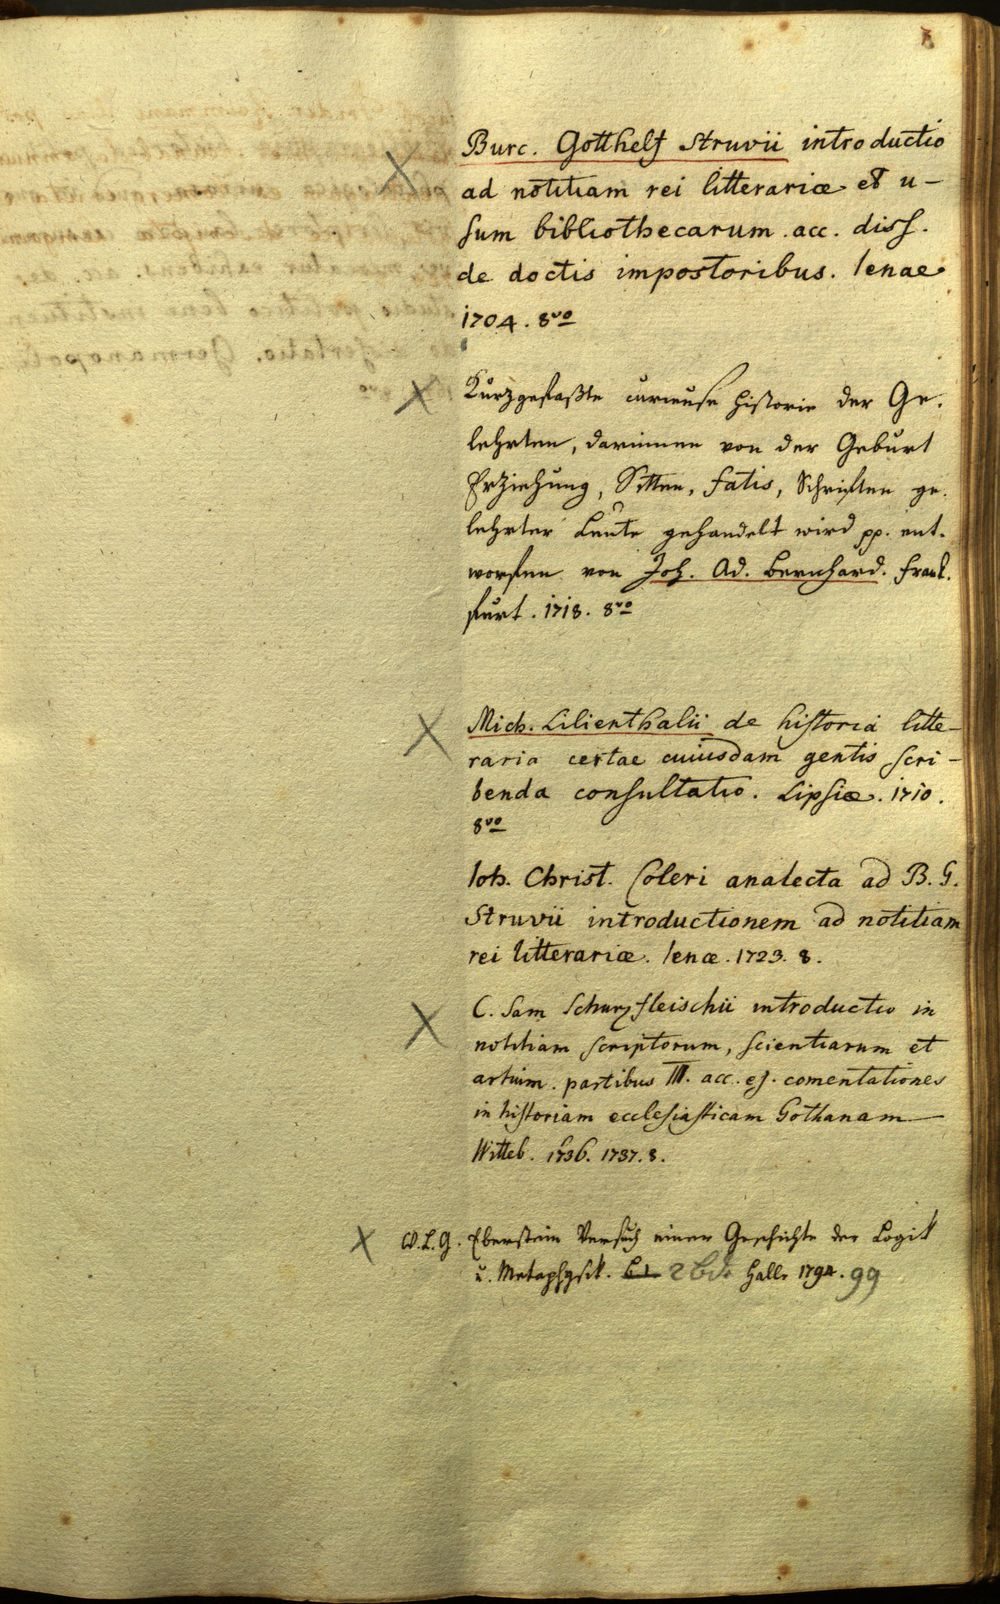 Burc. Gotthelf Struvii introductio
ad notitiam rei litterariæ et u-
sum bibliothecarum. acc. diss.
de doctis impostoribus. Ienae
1704. 8vo
Kurzgefaßte curieuse Historie der Ge-
lehrten, darinnen von der Geburt
Erziehung, Sitten, Fatis, Schriften ge-
lehrter Leute gehandelt wird pp. ent-
worffen von Joh. Ad. Bernhard. Frank-
furt. 1718. 8vo
Mich. Lilienthalii de historia litte-
raria certae cuiusdam gentis scri-
benda consultatio. Lipsiæ. 1710.
8vo
Ioh. Christ. Coleri analecta ad B. G.
Struvii introductionem ad notitiam
rei litterariæ. Ienæ. 1723. 8.
C. Sam Schurzfleischii introductio in
notitiam scriptorum, scientiarum et
artium. partibus III. acc. ej. comentationes
in historiam ecclesiasticam Gothanam
Witteb. 1736. 1737. 8.
W. L. G. Eberstein Versuch einer Geschichte der Logik
u. Metaphysik. 2 bde Halle 1794. 99